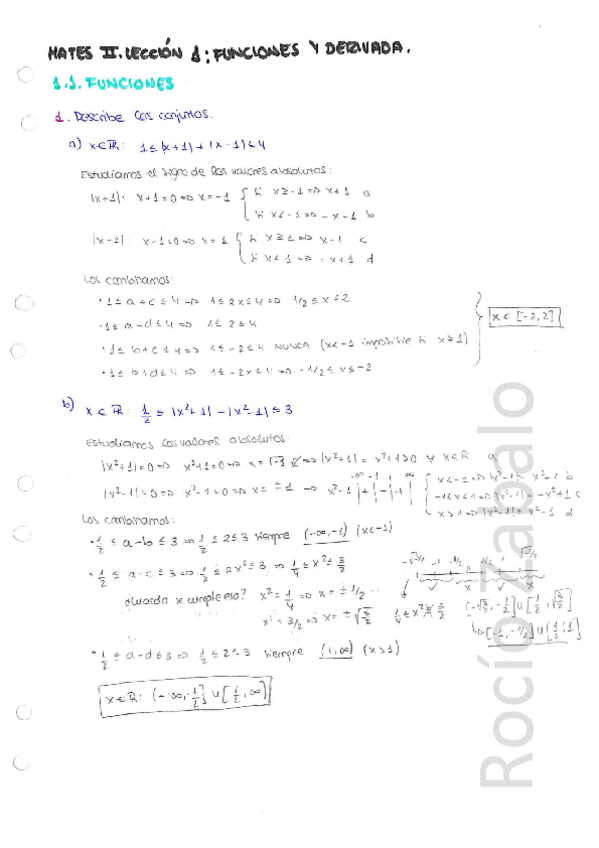 MATES II. LECCIÓN 1: FUNCIONES Y DERIVADA.
1.1. FUNCIONES
1. Describe los conjuntos.
a) x∈ℝ: 1≤|x+1|+|x-1|≤4
Estudiamos el signo de los valores absolutos:
|x+1|: x+1=0 ⇒ x=-1 { Si x≥-1 ⇒ x+1 a
Si x<-1 ⇒ -x-1 b
|x-1|: x-1=0 ⇒ x=1 { Si x≥1 ⇒ x-1 c
Si x<1 ⇒ -x+1 d
Los combinamos:
• 1≤a+c≤4 ⇒ 1≤2x≤4 ⇒ 1/2≤x≤2
• 1≤a-d≤4 ⇒ 1≤2≤4
x∈[-2,2]
• 1≤b+c≤4 ⇒ 1≤-2≤4 NUNCA (x<-1 imposible si x≥1)
• 1≤b+d≤4 ⇒ 1≤-2x≤4 ⇒ -1/2≤x≤-2
b) x∈ℝ: 1/2≤|x²+1|-|x²-1|≤3
Estudiamos los valores absolutos:
|x²+1|=0 ⇒ x²+1=0 ⇒ x=√-1 ⇒ |x²+1|=x²+1>0 ∀ x∈ℝ a
|x²-1|=0 ⇒ x²-1=0 ⇒ x=±1 → x²-1
x<-1 ⇒ |x²-1|=x²-1 b
-1≤x≤1 ⇒ |x²-1|=-x²+1 c
x>1 ⇒ |x²-1|=x²-1 d
Los combinamos:
• 1/2≤a-b≤3 ⇒ 1/2≤2≤3 siempre (-∞,-1) (x<-1)
• 1/2≤a-c≤3 ⇒ 1/2≤2x²≤3 ⇒ 1/4≤x²≤3/2
¿Cuándo x cumple eso? x²=1/4 ⇒ x=±1/2
x²=3/2 ⇒ x=±√3/2
1/4≤x²≤3/2
[-√3/2,-1/2]∪[1/2,√3/2]
↳[-1,-1/2]∪[1/2,1]
• 1/2≤a-d≤3 ⇒ 1/2≤2≤3 siempre (1,∞) (x>1)
x∈ℝ: (-∞,-1/2]∪[1/2,∞)
RocíoZabalo